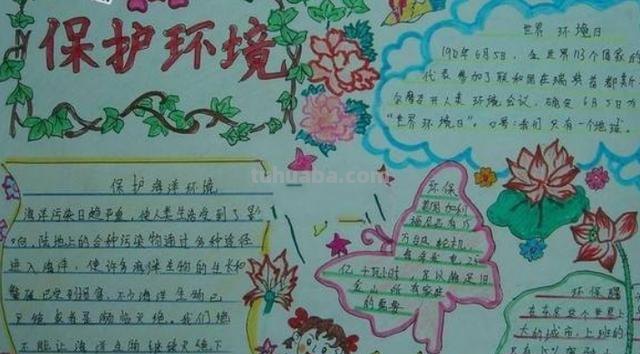 保护环境
世界 环境日
1972年6月5日，全世界113个国家的
代表参加了联和国在瑞典首都斯
尔摩召开人类 环境会议，确定 6月5日为
"世界 环境日"，口号：我们 只有一个地球。
tuhuaba.com
保护海洋环境
海洋污染日趋严重，使人类生活受到了影
响，陆地上的各种污染物通过各种途径
进入海洋，使许多海洋生物的生长和
繁殖已受到损害，不少海洋生物已
灭绝或者是频临灭绝，我们绝
不能让海洋生物继续灭绝下
环保
美国加利
福尼亚有
万台风轮机，
年发电
亿千瓦小时，足以满足旧
金山所有家庭
的需要
环保
大的城市，上班的